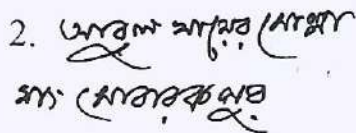 2. আবুল খায়ের মোল্লা
সাং মোবারকপুর